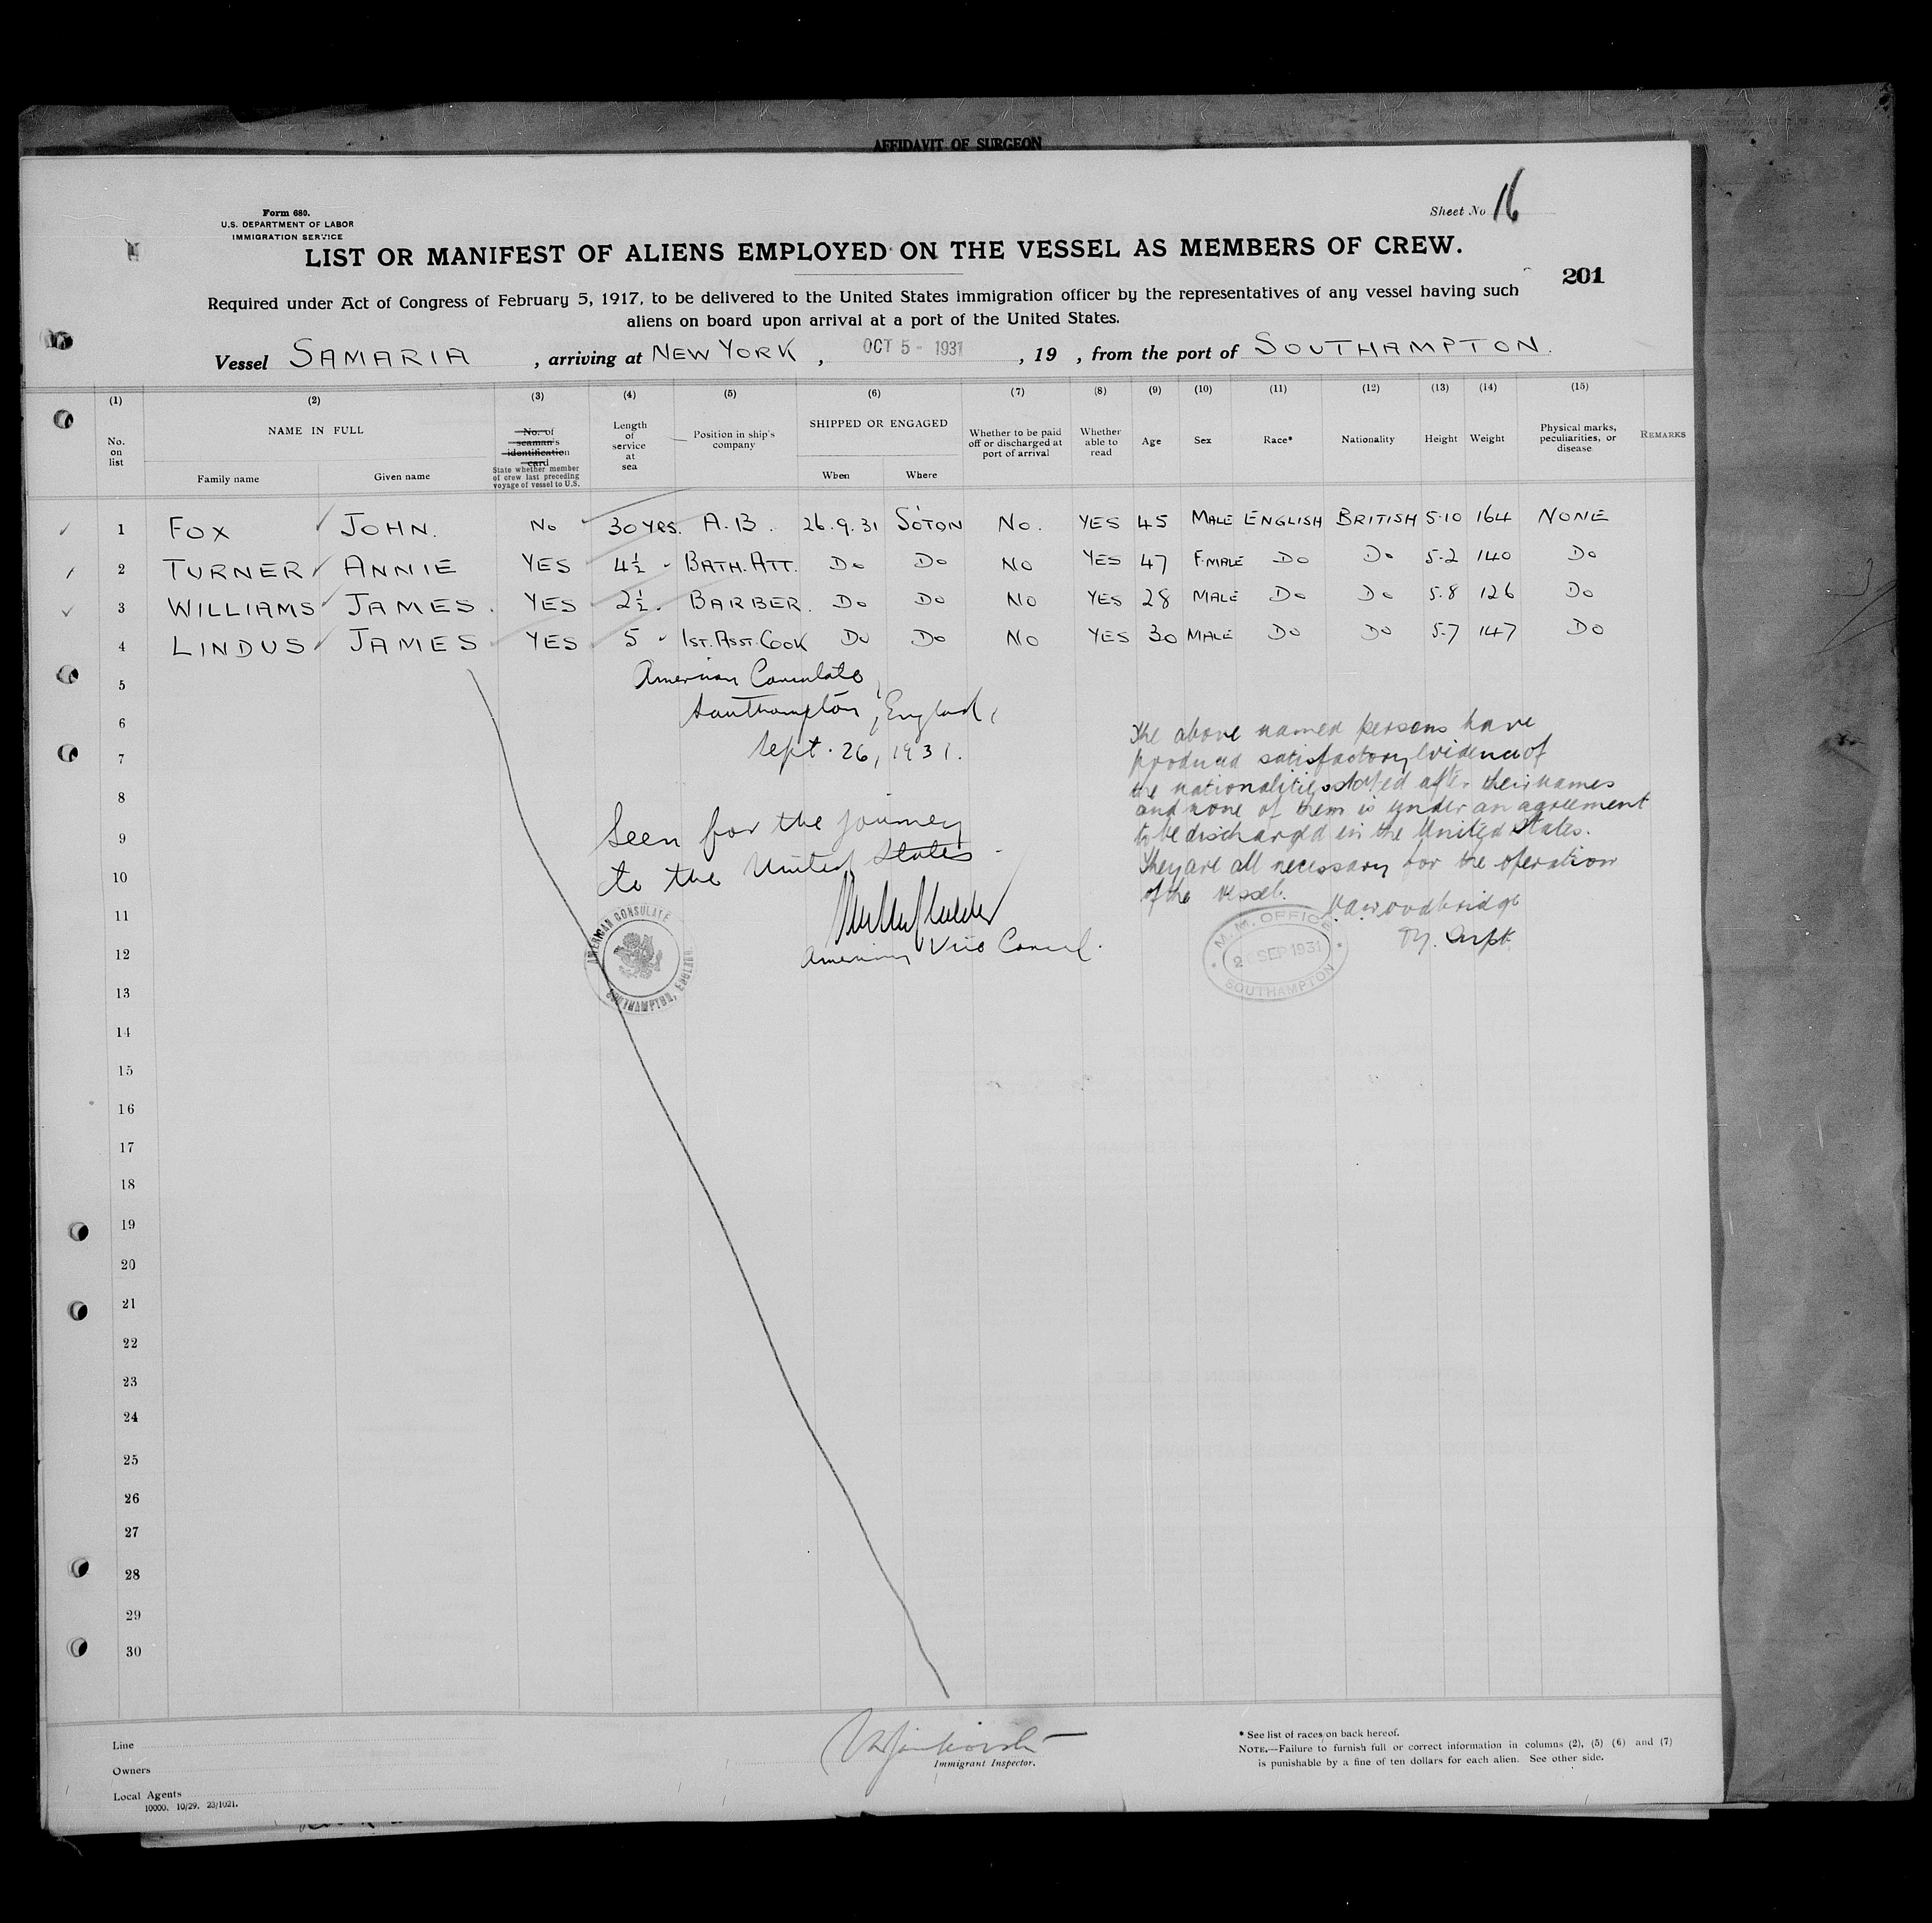 AFFIDAVIT OF SURGEON
Form 680.
U.S. DEPARTMENT OF LABOR
IMMIGRATION SERVICE
Sheet No. 16
LIST OR MANIFEST OF ALIENS EMPLOYED ON THE VESSEL AS MEMBERS OF CREW.
201
Required under Act of Congress of February 5, 1917, to be delivered to the United States immigration officer by the representatives of any vessel having such
aliens on board upon arrival at a port of the United States.
Vessel SAMARIA, arriving at NEW YORK, OCT 5 - 1931, 19 , from the port of SOUTHAMPTON.
(1) (2) (3) (4) (5) (6) (7) (8) (9) (10) (11) (12) (13) (14) (15)
No. on list
NAME IN FULL
Family name Given name
No. of seaman's identification card
State whether member of crew last preceding voyage of vessel to U.S.
Length of service at sea
Position in ship's company
SHIPPED OR ENGAGED
When Where
Whether to be paid off or discharged at port of arrival
Whether able to read
Age
Sex
Race*
Nationality
Height
Weight
Physical marks, peculiarities, or disease
REMARKS
1 FOX JOHN. No 30 YRS. A.B. 26.9.31 S'OTON No. YES 45 MALE ENGLISH BRITISH 5-10 164 NONE
2 TURNER ANNIE YES 4½ BATH.ATT. Do Do No YES 47 F.MALE Do Do 5-2 140 Do
3 WILLIAMS JAMES. YES 2½. BARBER. Do Do No YES 28 MALE Do Do 5.8 126 Do
4 LINDUS JAMES YES 5 1ST.ASST.COOK Do Do No YES 30 MALE Do Do 5-7 147 Do
5
6
7
8
9
10
11
12
13
14
15
16
17
18
19
20
21
22
23
24
25
26
27
28
29
30
American Consulate,
Southampton, England,
Sept. 26, 1931.
Seen for the journey
to the United States.
American Vice Consul.
AMERICAN CONSULATE
SOUTHAMPTON, ENGLAND
The above named persons have
produced satisfactory evidence of
the nationalities stated after their names
and none of them is under an agreement
to be discharged in the United States.
They are all necessary for the operation
of the vessel.
Woodbridge
M.M. OFFICE
SEP 1931
SOUTHAMPTON
Line
Owners
Local Agents
10000. 10/29. 23/1021.
Immigrant Inspector.
* See list of races on back hereof.
NOTE.—Failure to furnish full or correct information in columns (2), (5) (6) and (7)
is punishable by a fine of ten dollars for each alien. See other side.